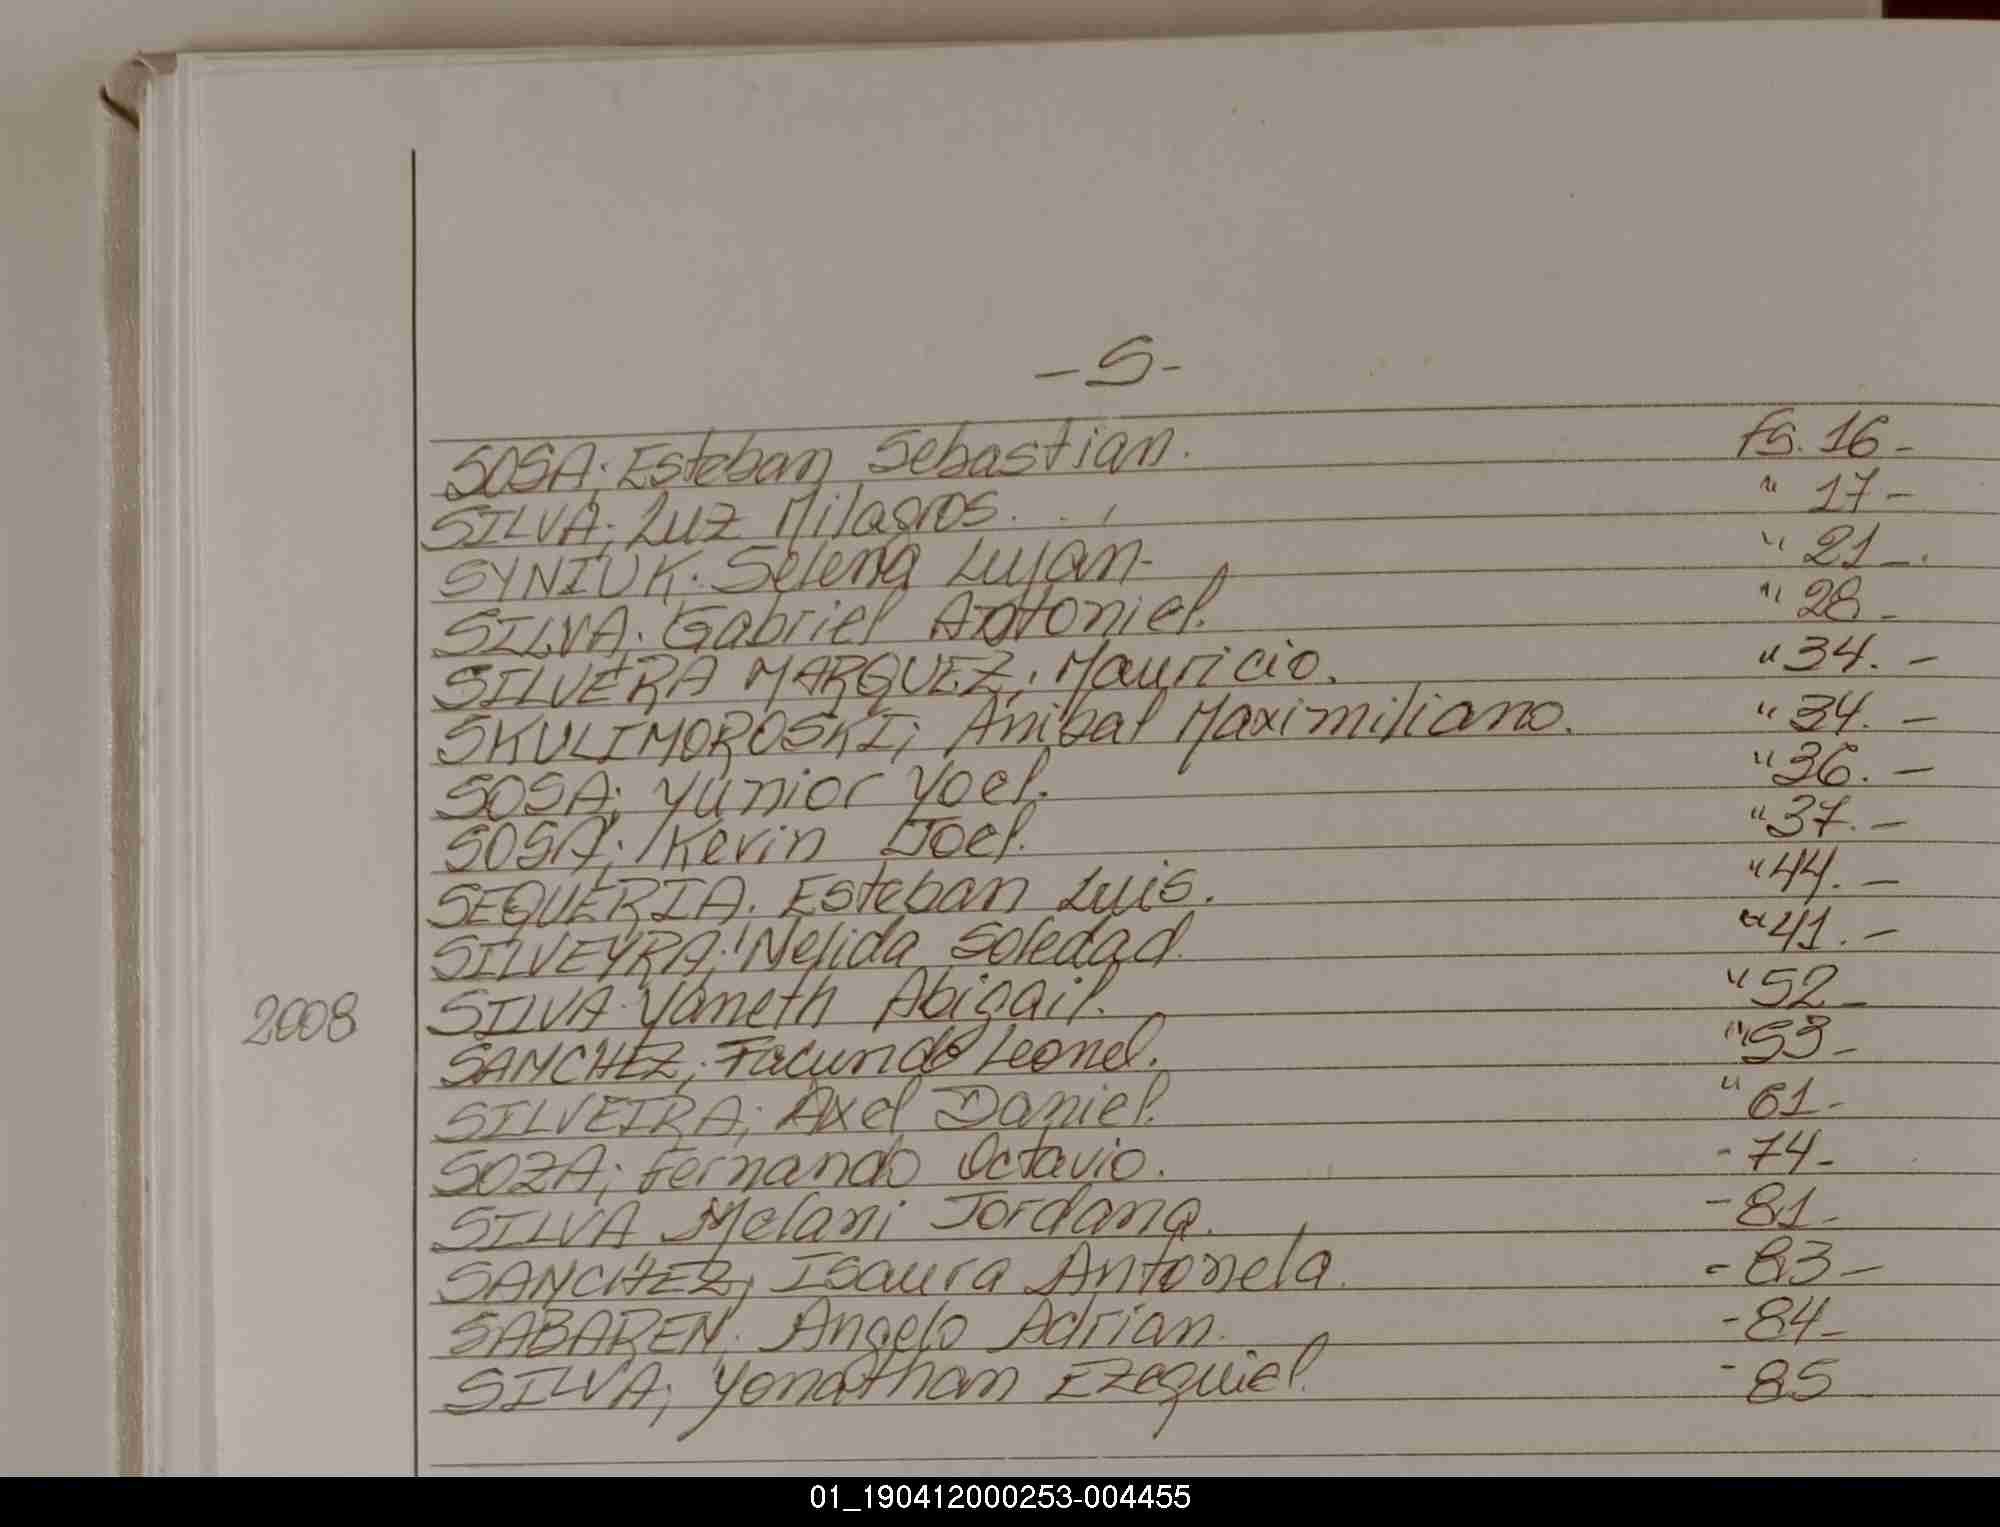 -S-
SOSA; Esteban Sebastian. fs. 16-
SILVA; Luz Milagros. " 17-
SYNIUK. Selena Lujan- " 21-.
SILVA. Gabriel Antoniel. " 28-
SILVERA MARQUEZ; Mauricio. " 34.-
SKULIMOROSKI; Anibal Maximiliano. " 34.-
SOSA; Yunior Yoel. " 36.-
SOSA; Kevin Joel. " 37.-
SEQUERIA. Esteban Luis. " 44.-
SILVEYRA; Nelida Soledad. " 41.-
2008 SILVA. Yaneth Abigail. " 52-
SANCHEZ; Facundo Leonel. " 53-
SILVEIRA; Axel Daniel. " 61-
SOZA; Fernando Octavio. - 74-
SILVA Melani Jordana. - 81-
SANCHEZ; Isaura Antonela. - 83-
SABAREN. Angelo Adrian. - 84-
SILVA; Yonathan Ezequiel. - 85
01_190412000253-004455